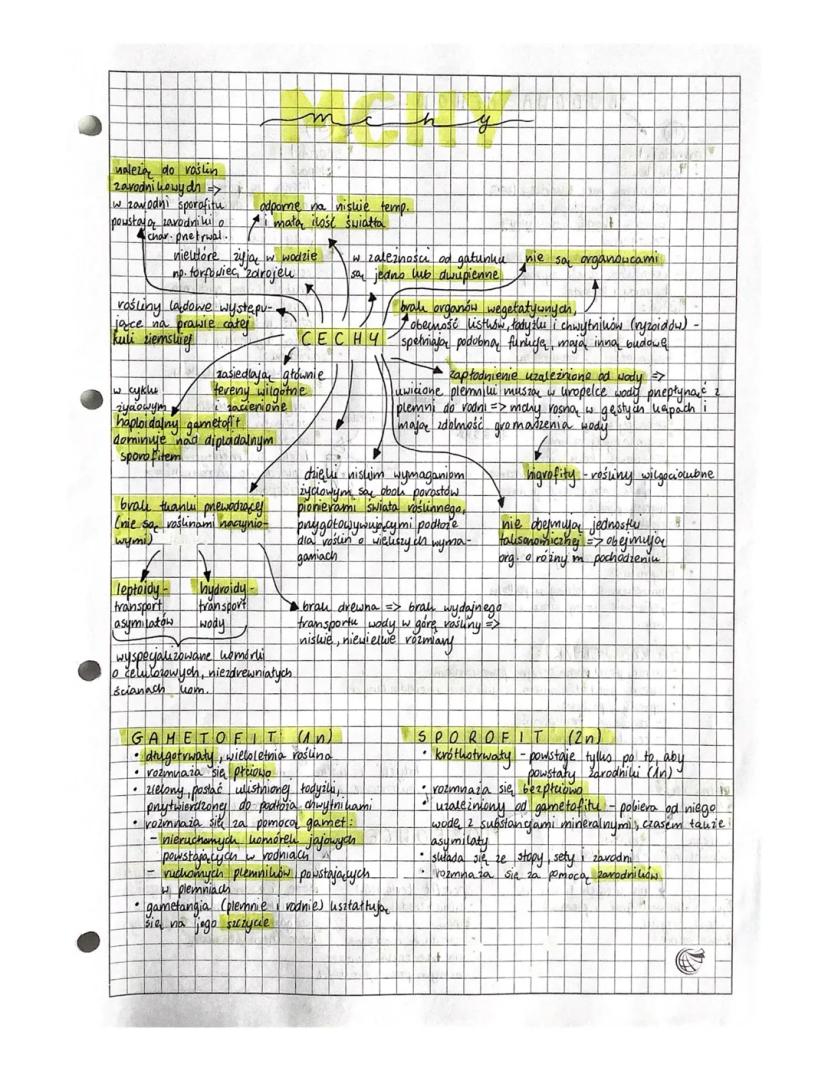 MCHY
mchy
należą do roślin
zarodnikowych =>
w zarodni sporofitu
powstają zarodniki o
char. przetrwal.
odporne na niskie temp.
i małą ilość światła
niektóre żyją w wodzie
np. torfowiec, zdrojek
w zależności od gatunku
są jedno lub dwupienne
nie są organowcami
rośliny lądowe występu-
jące na prawie całej
kuli ziemskiej
CECHY
brak organów wegetatywnych,
obecność listków, łodyżki i chwytników (ryzoidów) -
spełniają podobną funkcję, mają inną budowę
zasiedlają głównie
tereny wilgotne
i zacienione
zapłodnienie uzależnione od wody =>
uwicione plemniki muszą w kropelce wody przepłynąć z
plemni do rodni => mchy rosną w gęstych kępach i
mają zdolność gromadzenia wody
w cyklu
życiowym
haploidalny gametofit
dominuje nad diploidalnym
sporofitem
higrofity - rośliny wilgociolubne
dzięki niskim wymaganiom
życiowym są obok porostów
pionierami świata roślinnego,
przygotowywującymi podłoże
dla roślin o większych wyma-
ganiach
brak tkanki przewodzącej
(nie są roślinami naczynio-
wymi)
nie obejmują jednostki
taksonomicznej => obejmują
org. o różnym pochodzeniu
leptoidy -
transport
asymilatów
hydroidy -
transport
wody
brak drewna => brak wydajnego
transportu wody w górę rośliny =>
niskie, niewielkie rozmiary
wyspecjalizowane komórki
o celulozowych, niezdrewniałych
ścianach kom.
GAMETOFIT (1n)
• długotrwały, wieloletnia roślina
• rozmnaża się płciowo
• zielony, postać ulistnionej łodyżki,
przytwierdzonej do podłoża chwytnikami
• rozmnaża się za pomocą gamet:
– nieruchomych komórek jajowych
powstających w rodniach
– ruchomych plemników powstających
w plemniach
• gametangia (plemnie i rodnie) kształtują
się na jego szczycie
SPOROFIT (2n)
• krótkotrwały - powstaje tylko po to, aby
powstały zarodniki (1n)
• rozmnaża się bezpłciowo
• uzależniony od gametofitu - pobiera od niego
wodę z substancjami mineralnymi, czasem także
asymilaty
• składa się ze stopy, sety i zarodni
• rozmnaża się za pomocą zarodników